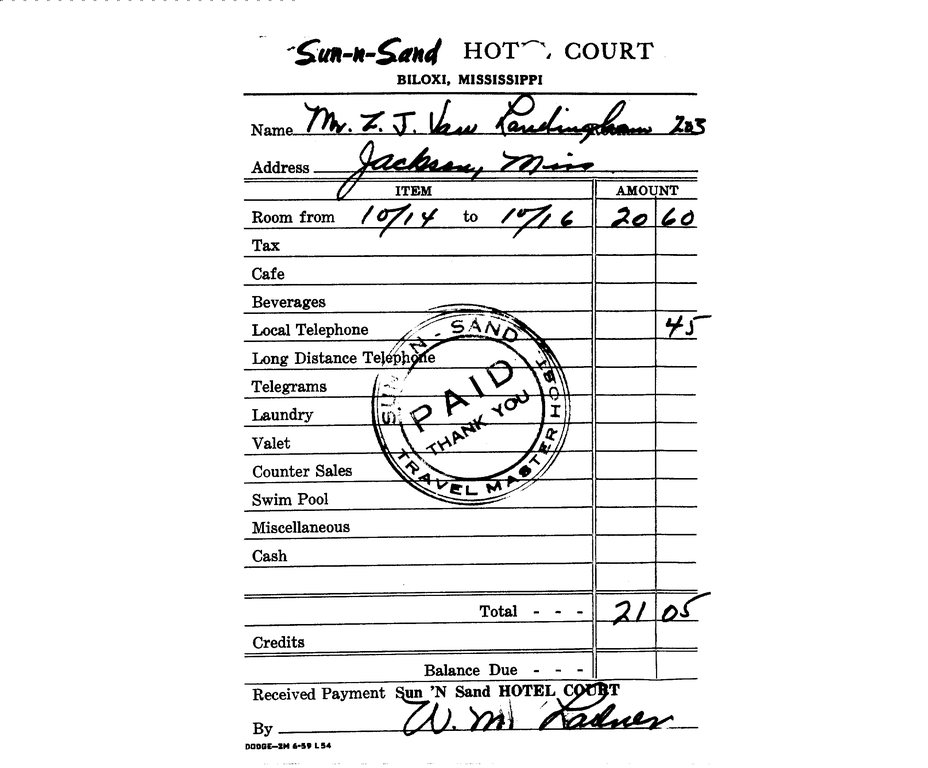 Sun-n-Sand HOT COURT
BILOXI, MISSISSIPPI
Name Mr. Z. J. Van Landingham 203
Address Jackson, Miss
ITEM AMOUNT
Room from 10/14 to 10/16 20 60
Tax
Cafe
Beverages
Local Telephone 45
Long Distance Telephone
Telegrams
Laundry
Valet
Counter Sales
Swim Pool
Miscellaneous
Cash
SUN-N-SAND
PAID
THANK YOU
TRAVEL MASTER HOST
Total - - - 21 05
Credits
Balance Due - - -
Received Payment Sun 'N Sand HOTEL COURT
By W. M. Ladner
DODGE—2M 6-59 L54